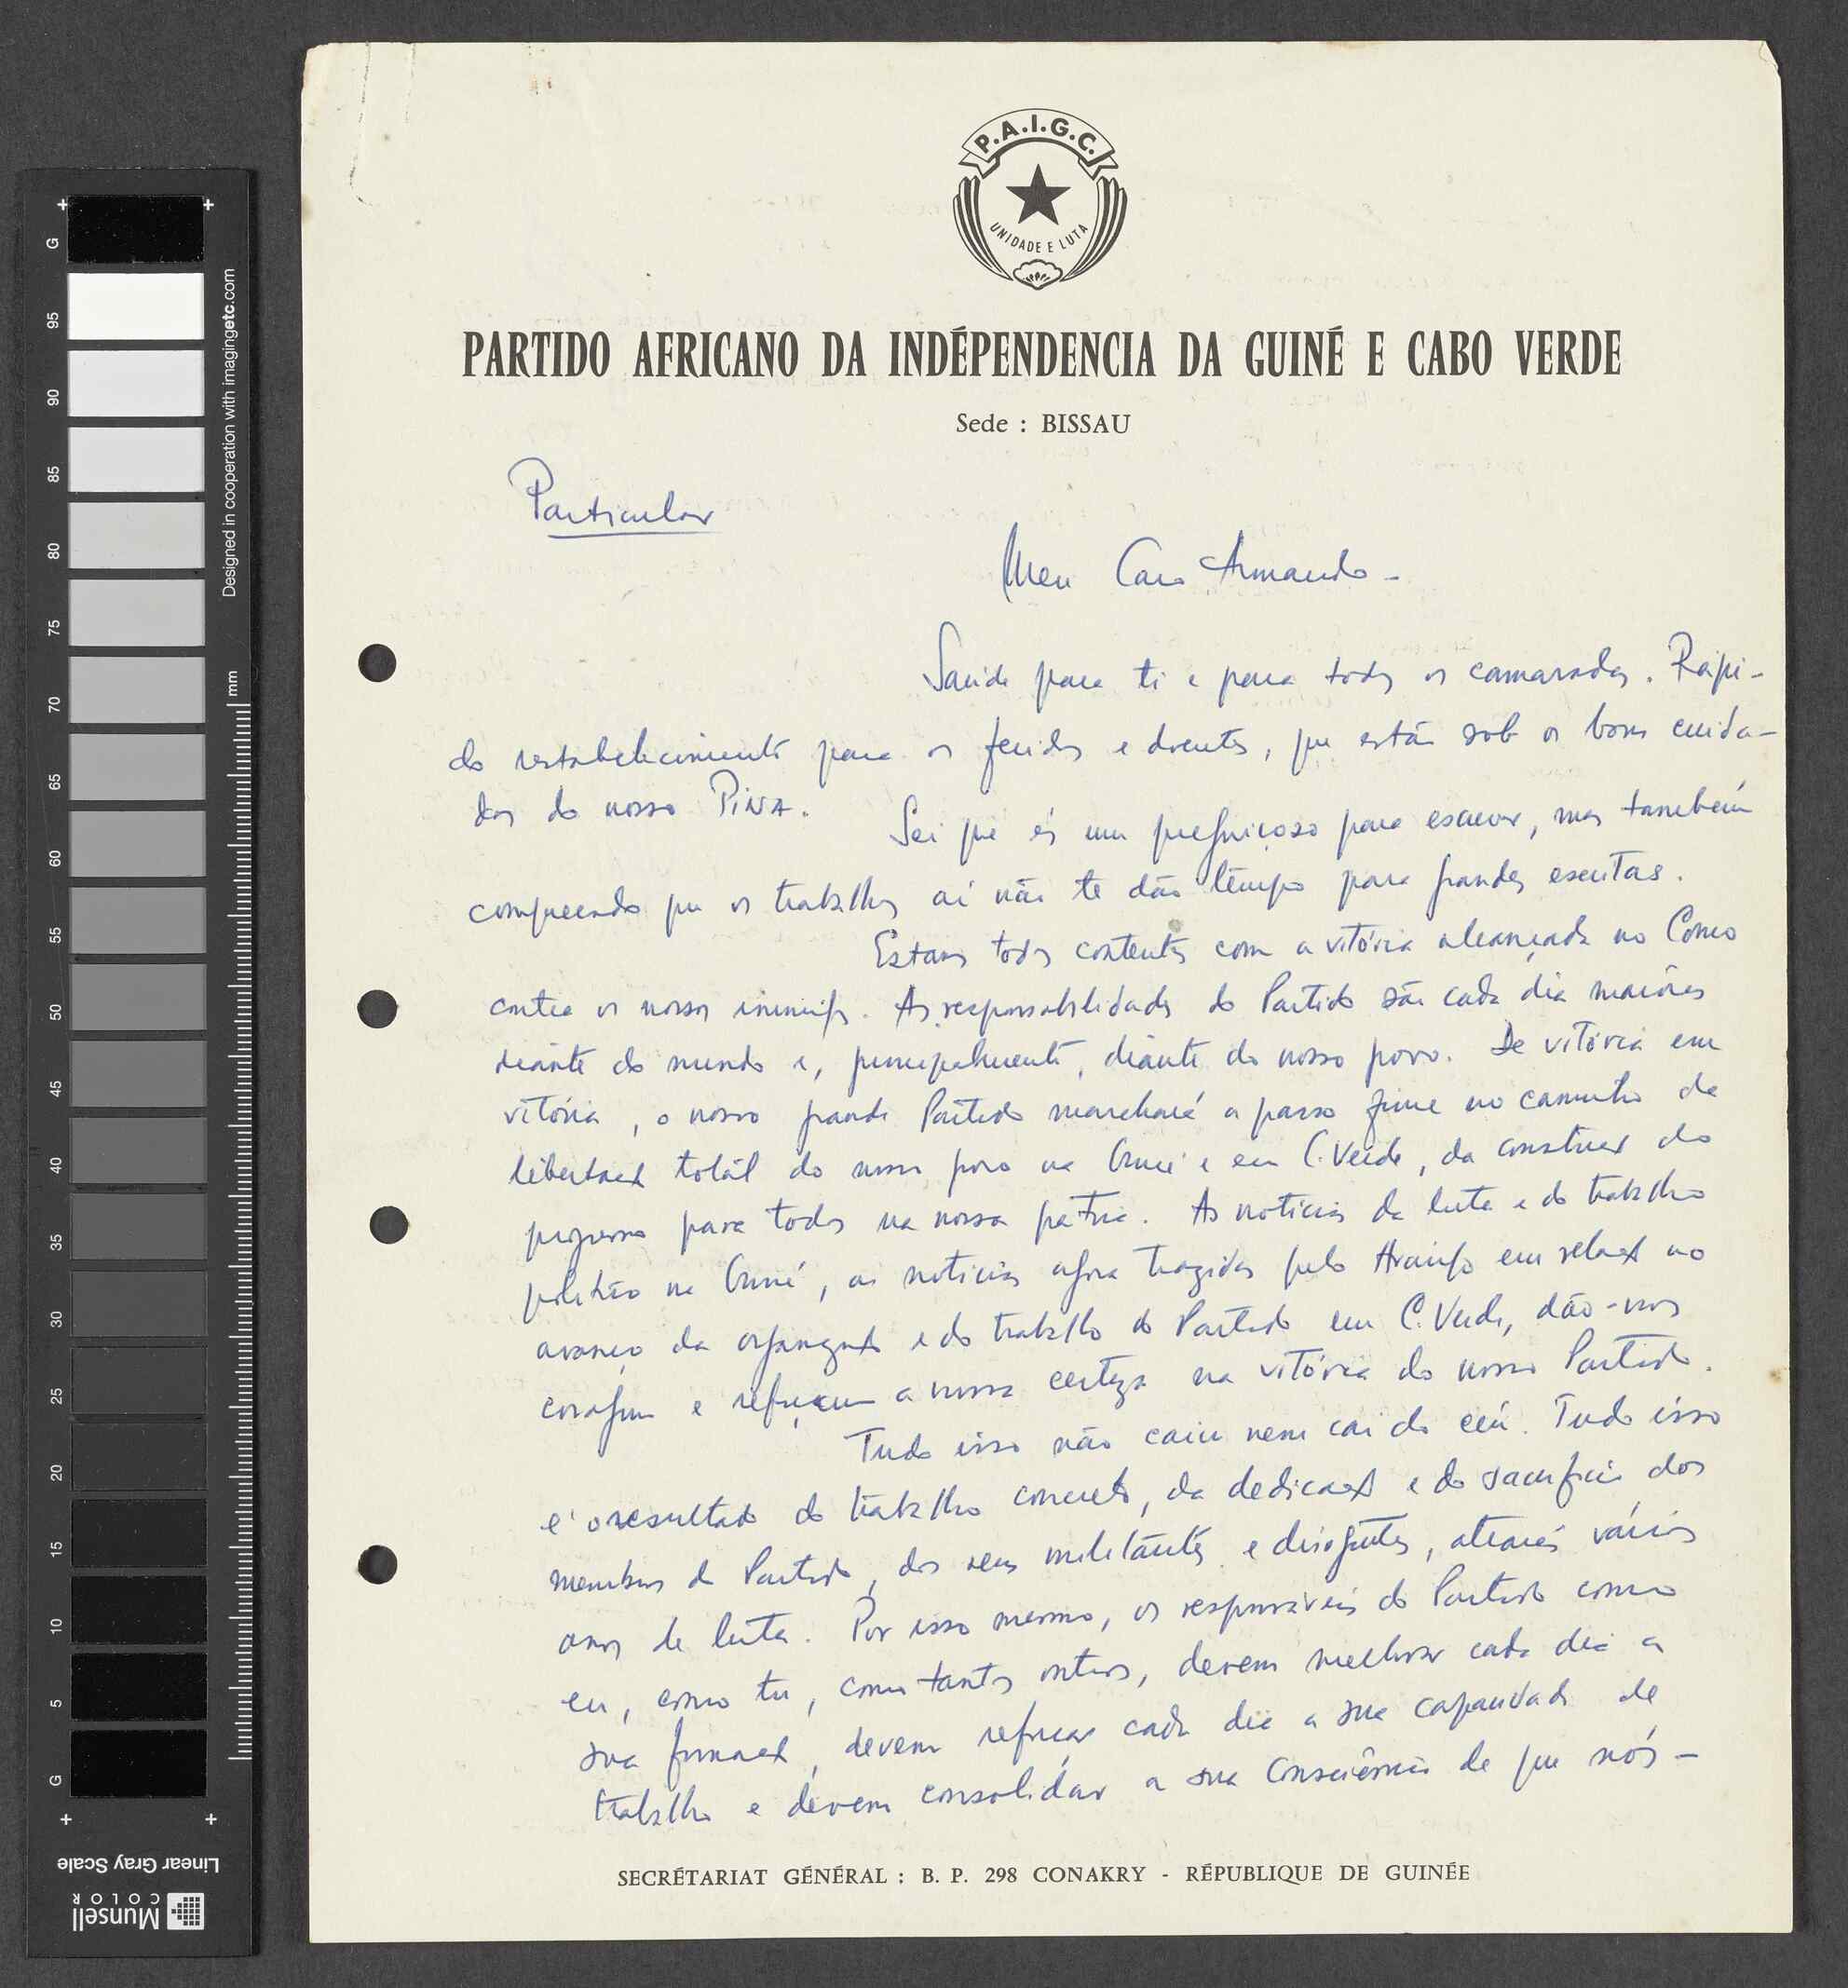 P.A.I.G.C.
UNIDADE E LUTA
PARTIDO AFRICANO DA INDÉPENDENCIA DA GUINÉ E CABO VERDE
Sede : BISSAU
Particular
Meu Caro Armando -
Saúde para ti e para todos os camaradas. Rápi-
do restabelecimento para os feridos e doentes, que estão sob os bons cuida-
dos do nosso PINA.
Sei que és um preguiçoso para escrever, mas também
compreendo que os trabalhos aí não te dão tempo para grandes escritas.
Estamos todos contentes com a vitória alcançada no Como
contra os nossos inimigos. As responsabilidades do Partido são cada dia maiores
diante do mundo e, principalmente, diante do nosso povo. De vitória em
vitória, o nosso grande Partido marchará a passo firme no caminho da
libertação total do nosso povo na Guiné e em C. Verde, da construção do
progresso para todos na nossa pátria. As notícias da luta e do trabalho
político na Guiné, as notícias agora trazidas pelo Araújo em relação ao
avanço da organização e do trabalho do Partido em C. Verde, dão-nos
coragem e reforçam a nossa certeza na vitória do nosso Partido.
Tudo isso não caiu nem cai do céu. Tudo isso
é o resultado do trabalho concreto, da dedicação e do sacrifício dos
membros do Partido, dos seus militantes e dirigentes, através vários
anos de luta. Por isso mesmo, os responsáveis do Partido como
eu, como tu, como tantos outros, devem melhorar cada dia a
sua formação, devem reforçar cada dia a sua capacidade de
trabalho e devem consolidar a sua consciência de que nós -
SECRÉTARIAT GÉNÉRAL : B. P. 298 CONAKRY - RÉPUBLIQUE DE GUINÉE
+ +
G
95
90
85
80
75
70
65
60
55
50
45
40
35
30
25
20
15
10
5
G
+ +
Designed in cooperation with imagingetc.com
mm
Linear Gray Scale
Munsell
COLOR